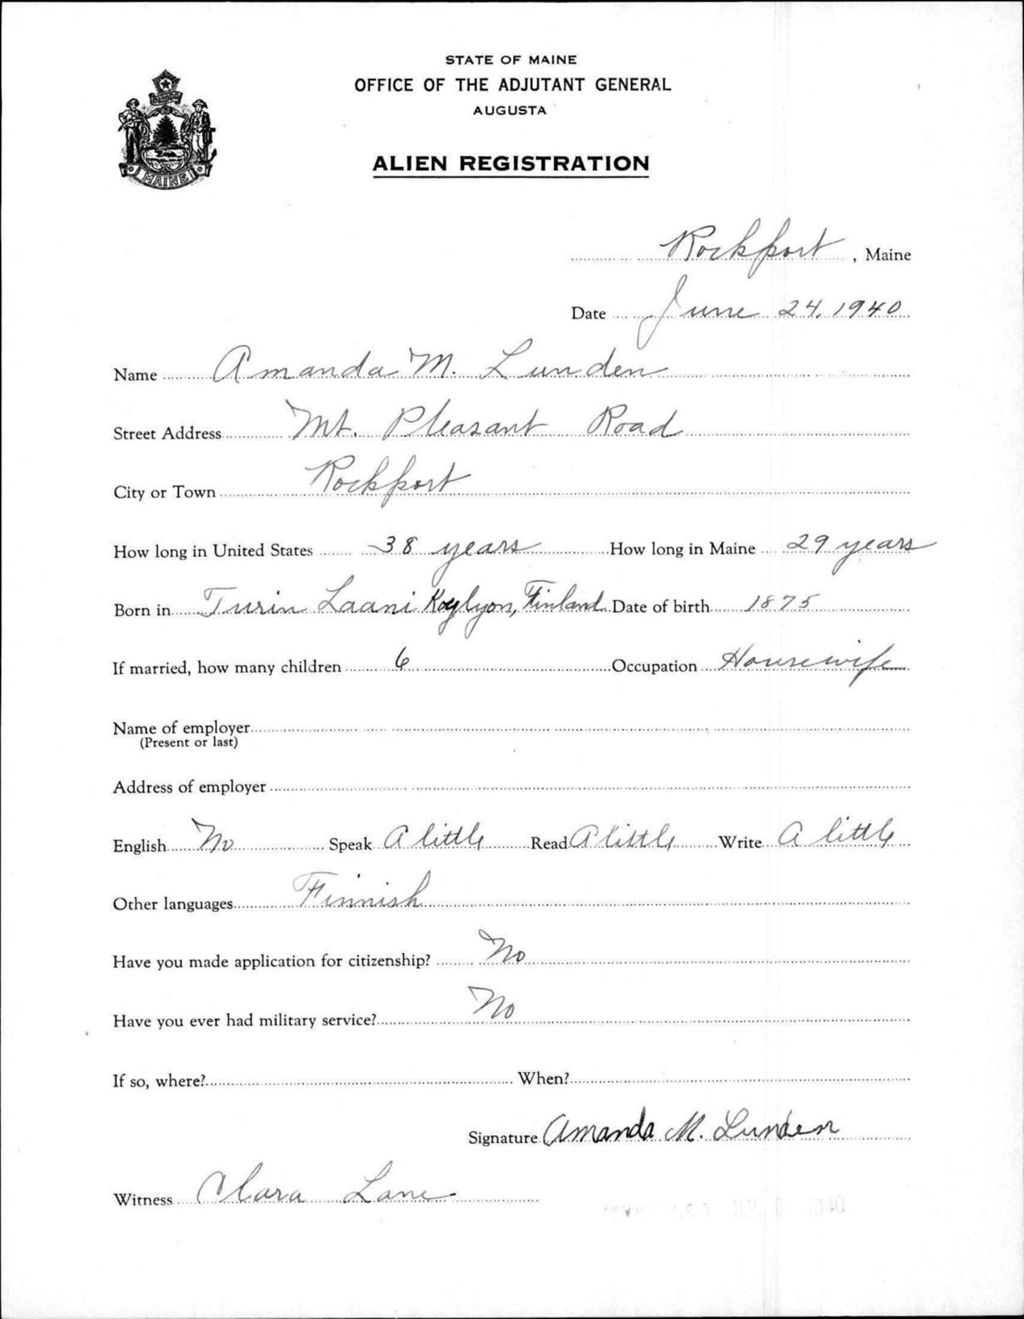 STATE OF MAINE
OFFICE OF THE ADJUTANT GENERAL
AUGUSTA
MAINE
ALIEN REGISTRATION
Rockport, Maine
Date June 24, 1940
Name Amanda M. Lunden
Street Address Mt. Pleasant Road
City or Town Rockport
How long in United States 38 years How long in Maine 29 years
Born in Turin Laani Koylyon, Finland Date of birth 1875
If married, how many children 6 Occupation Housewife
Name of employer
(Present or last)
Address of employer
English No Speak A little Read A little Write A little
Other languages Finnish
Have you made application for citizenship? No
Have you ever had military service? No
If so, where? When?
Signature Amanda M. Lunden
Witness Clara Lane